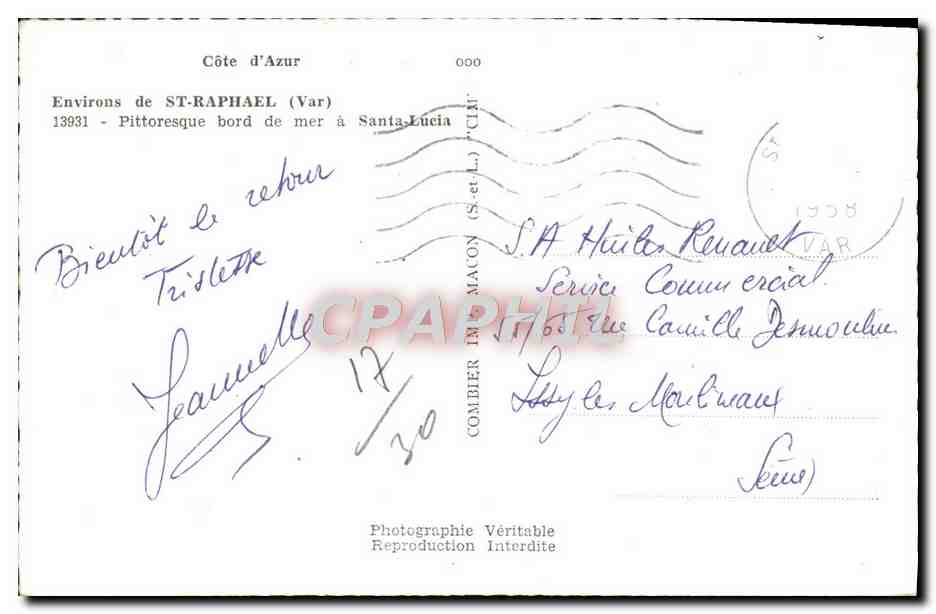 Côte d'Azur
ooo
Environs de ST-RAPHAEL (Var)
13931 - Pittoresque bord de mer à Santa-Lucia
Bientôt le retour
Tristesse
Jeannette
17/30
COMBIER IMP. MACON (S.-et-L.) "CIM"
1958
VAR
S.A Huiles Renault
Service Commercial
55/65 rue Camille Desmoulins
Issy les Moulineaux
Seine
CPAPHIL
Photographie Véritable
Reproduction Interdite